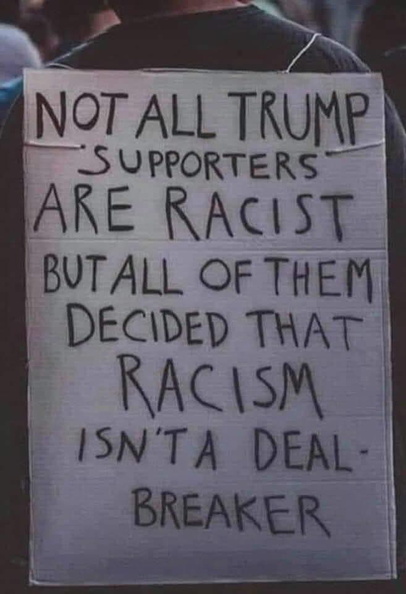 NOT ALL TRUMP
SUPPORTERS
ARE RACIST
BUT ALL OF THEM
DECIDED THAT
RACISM
ISN'T A DEAL-
BREAKER